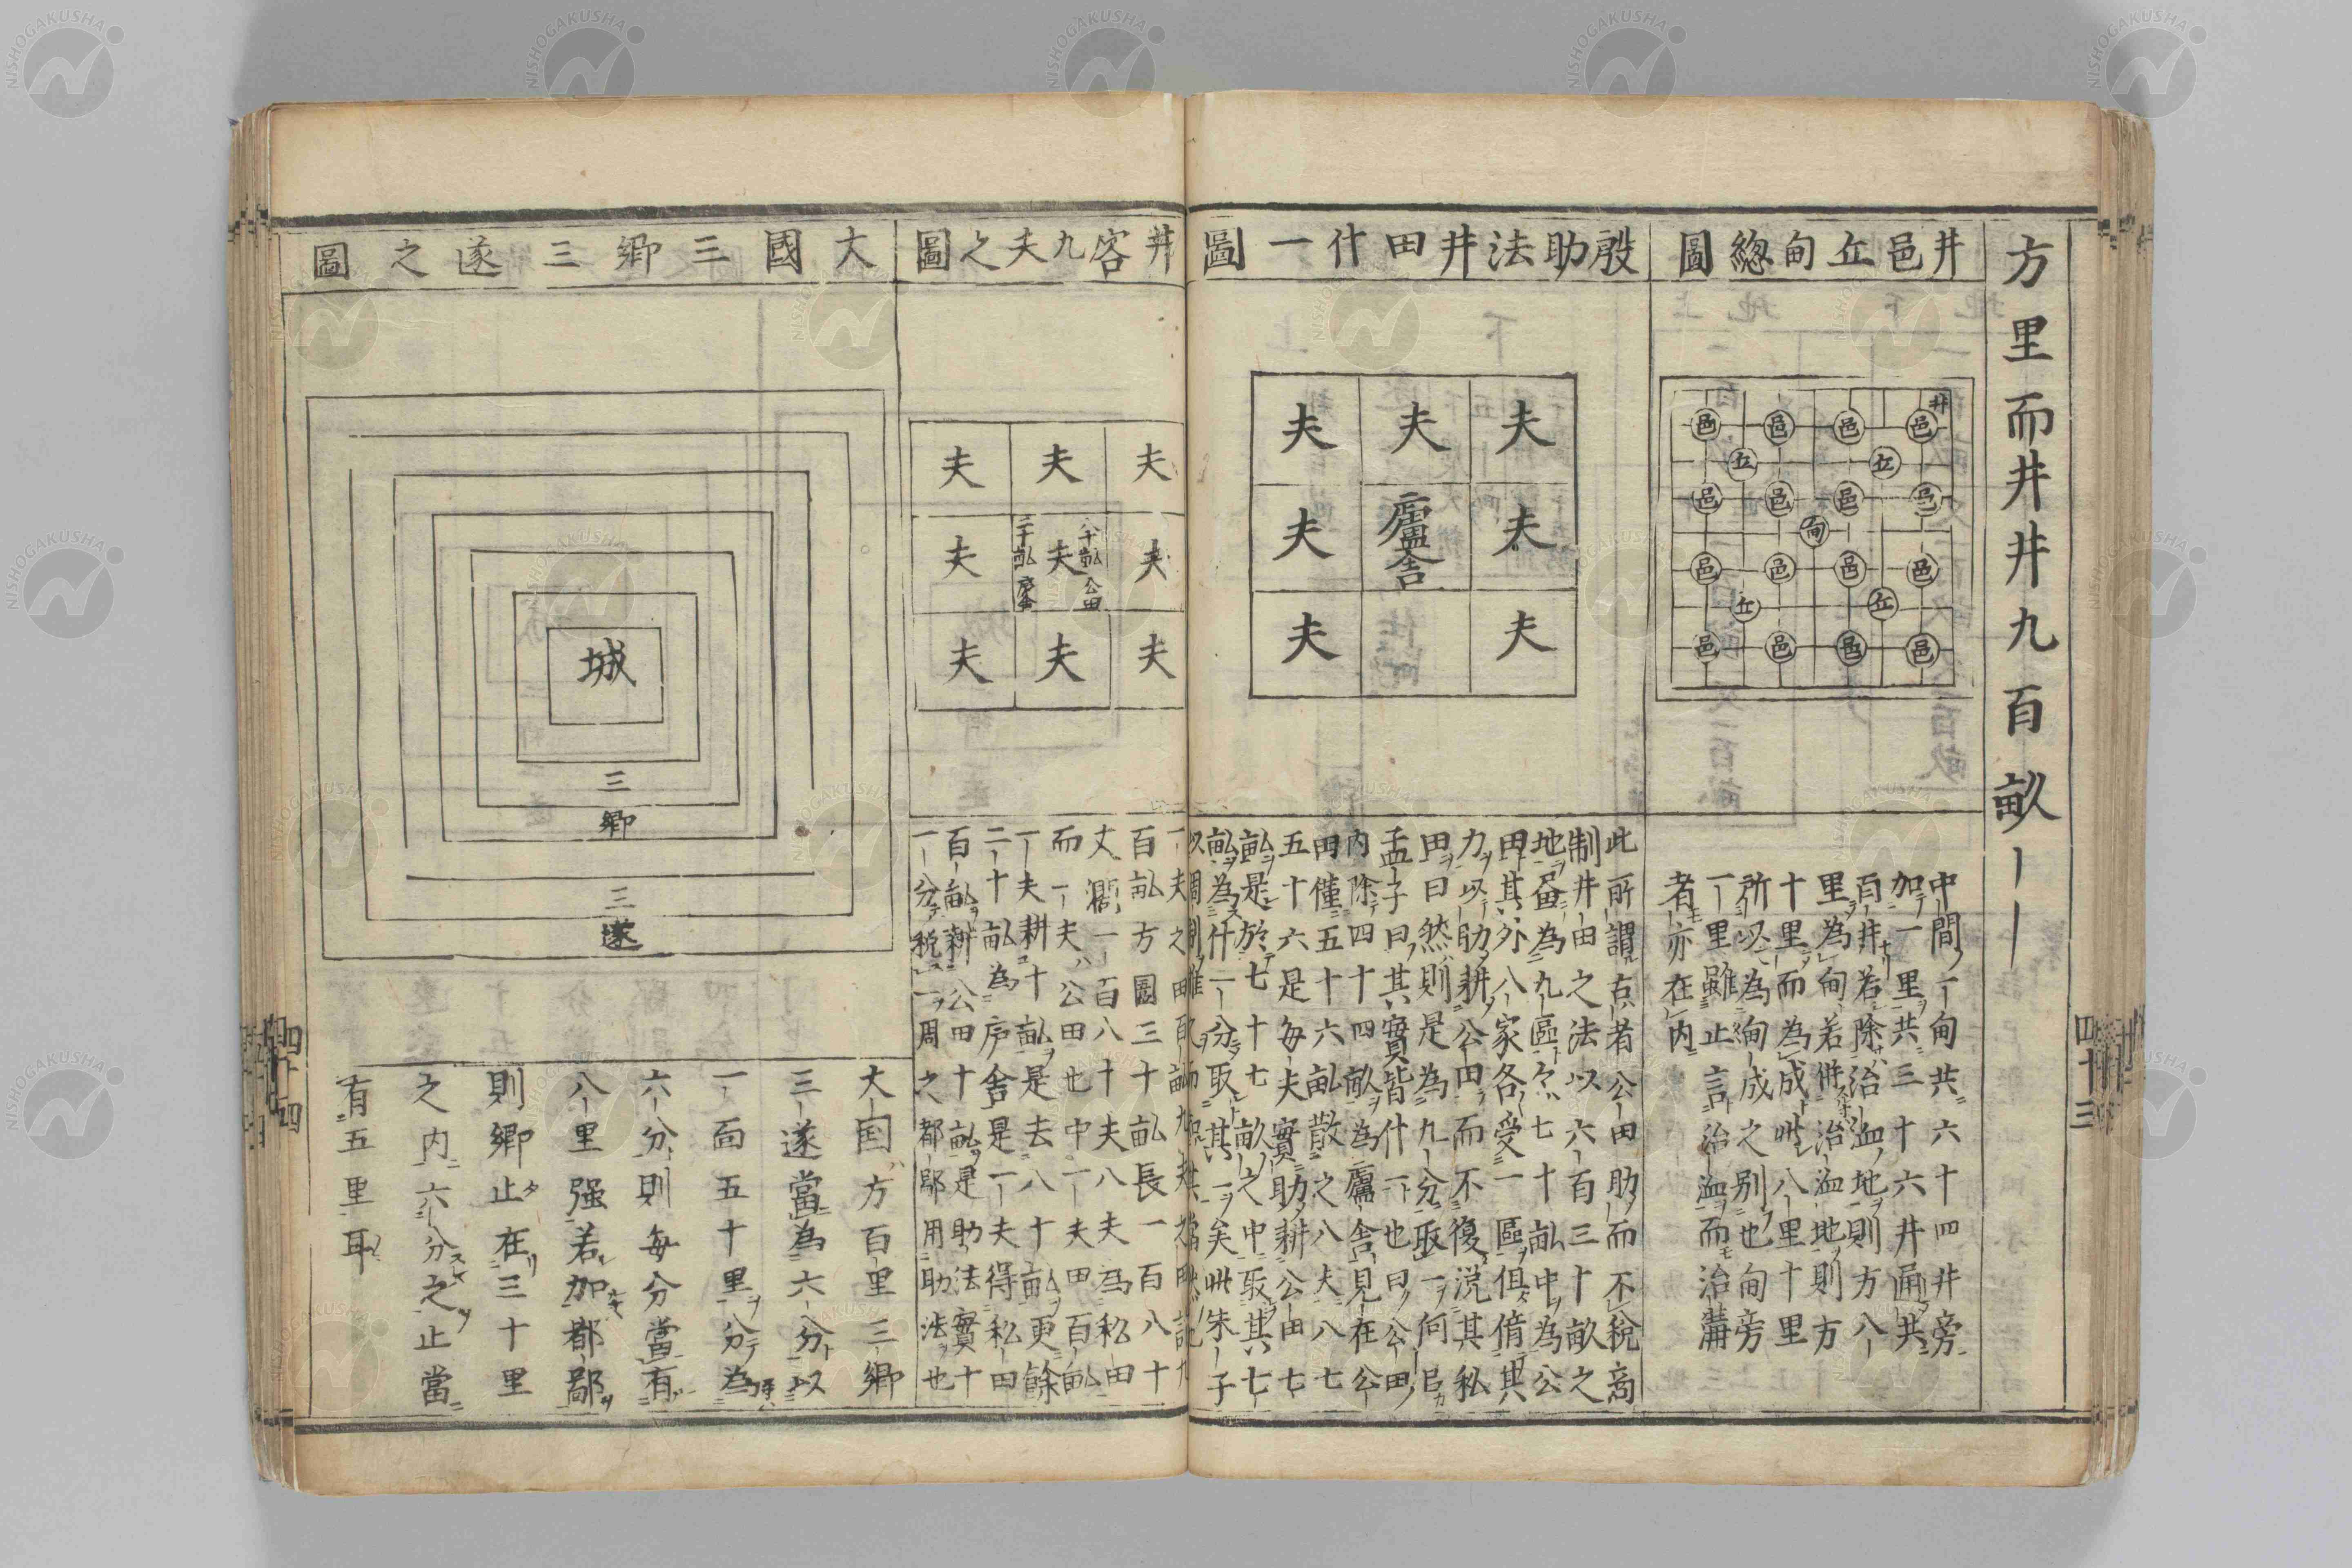 方里而井井九百畝
井邑丘甸緫圖
井
邑 邑 邑 邑
丘 丘
邑 邑 邑 邑
甸
邑 邑 邑 邑
丘 丘
邑 邑 邑 邑
中間一甸共六十四井旁
加一里共三十六井通共
百井若除治洫地則方八
里為甸若併治洫地則方
十里而為成此八里十里
所以為甸成之別也甸旁
一里雖止言治洫而治溝
者亦在内
殷助法井田什一圖
夫 夫 夫
夫 廬舍 夫
夫 夫
此所謂古者公田助而不稅商
制井田之法以六百三十畝之
地畫為九區區七十畝中為公
田其外八家各受一區俱借其
力以助耕公田而不復稅其私
田曰然則是為九分取一何
孟子曰其實皆什一也曰公田
内除四十四畝為廬舍見在公
田僅五十六畝散之八夫八七
五十六是每夫實助耕公田七
畝是於七十七畝之中取其七
畝為什一分取其一矣此朱子
井容九夫之圖
夫 夫 夫
夫 八十畝公田 夫 二十畝廬舍 夫
夫 夫 夫
百畝方圖三十畝長一百八十
丈濶一百八十丈八夫為私田
而一夫公田也中一夫田百畝
一夫耕十畝是去八十畝更餘
二十畝為庐舍是一夫得私田
百畝耕公田十畝是助法實十
一分稅一周之都鄙用助法也
大國三鄉三遂之圖
城
三鄉
三遂
大国方百里三鄉
三遂當為六分以
一面五十里分為
六分則每分當有
八里强若加都鄙
則鄉止在三十里
之内六分之止當
有五里耳
四十三
四十四
NISHOGAKUSHA